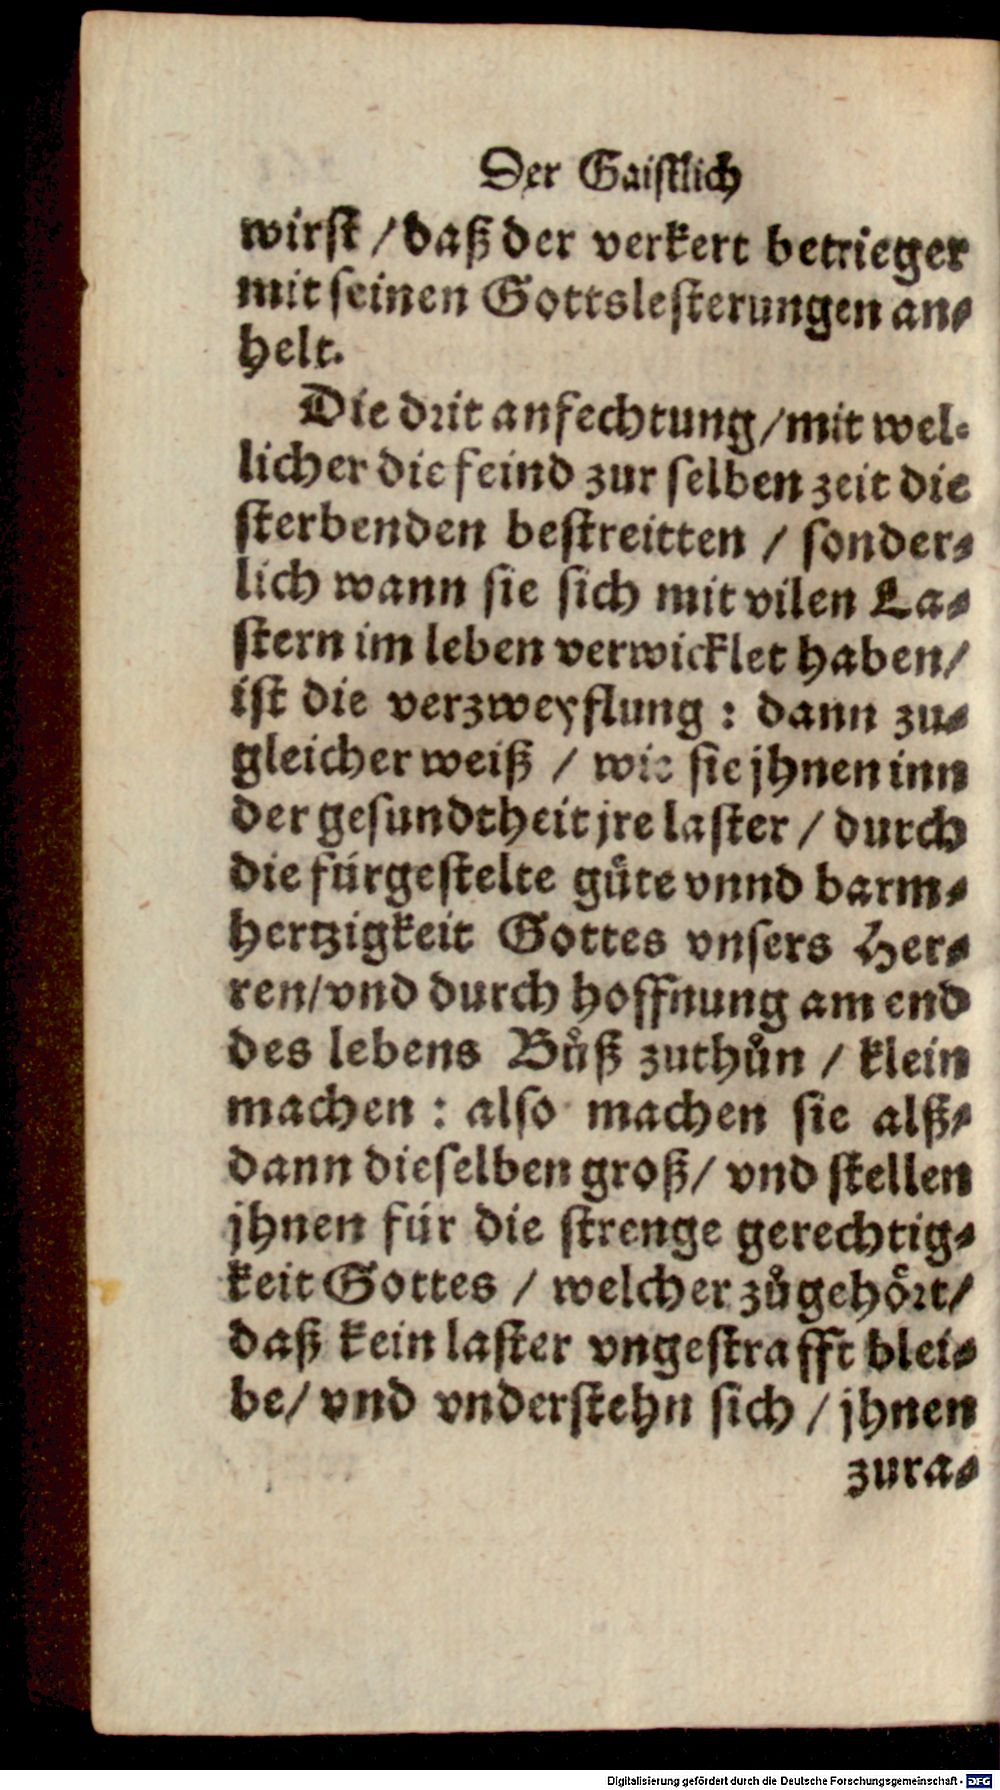 Der Gaistlich
wirst / daß der verkert betrieger
mit seinen Gottslesterungen an⸗
helt.
Die drit anfechtung / mit wel⸗
licher die feind zur selben zeit die
sterbenden bestreitten / sonder⸗
lich wann sie sich mit vilen La⸗
stern im leben verwicklet haben /
ist die verzweyflung : dann zu⸗
gleicher weiß / wie sie jhnen inn
der gesundtheit jre laster / durch
die fürgestelte guͤte vnnd barm⸗
hertzigkeit Gottes vnsers Her⸗
ren / vnd durch hoffnung am end
des lebens Buͦß zuthuͦn / klein
machen : also machen sie alß⸗
dann dieselben groß / vnd stellen
jhnen für die strenge gerechtig⸗
keit Gottes / welcher zuͦgehoͤrt /
daß kein laster vngestrafft blei⸗
be / vnd vnderstehn sich / jhnen
zura⸗
Digitalisierung gefördert durch die Deutsche Forschungsgemeinschaft - DFG